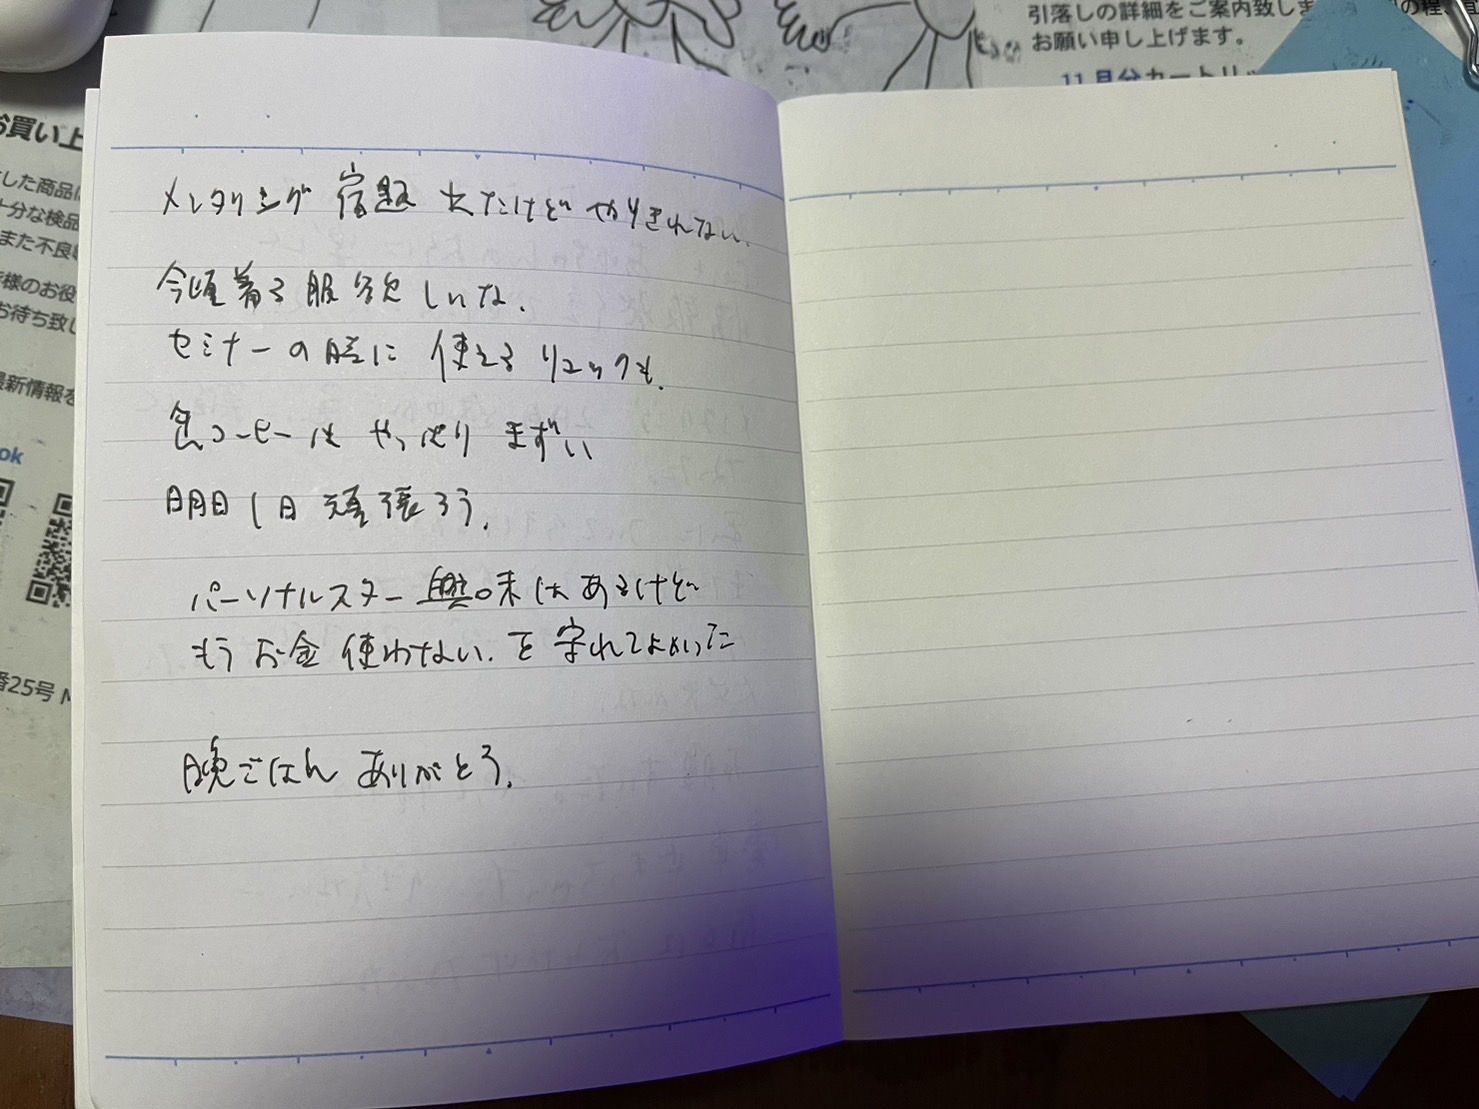 引落しの詳細をご案内致しま
お願い申し上げます。
11月分カートリッ
お買い上
した商品
十分な検品
また不良
様のお役
お待ち致し
最新情報を
ok
番25号 M
メンタリング 宿題 出たけど やりきれない、
今度着る服欲しいな、
セミナーの時に 使える リュックも、
缶コーヒーは やっぱり まずい
明日1日 頑張ろう、
パーソナルスター 興味はあるけど
もう お金 使わない、を 守れてよかった
晩ごはん ありがとう、